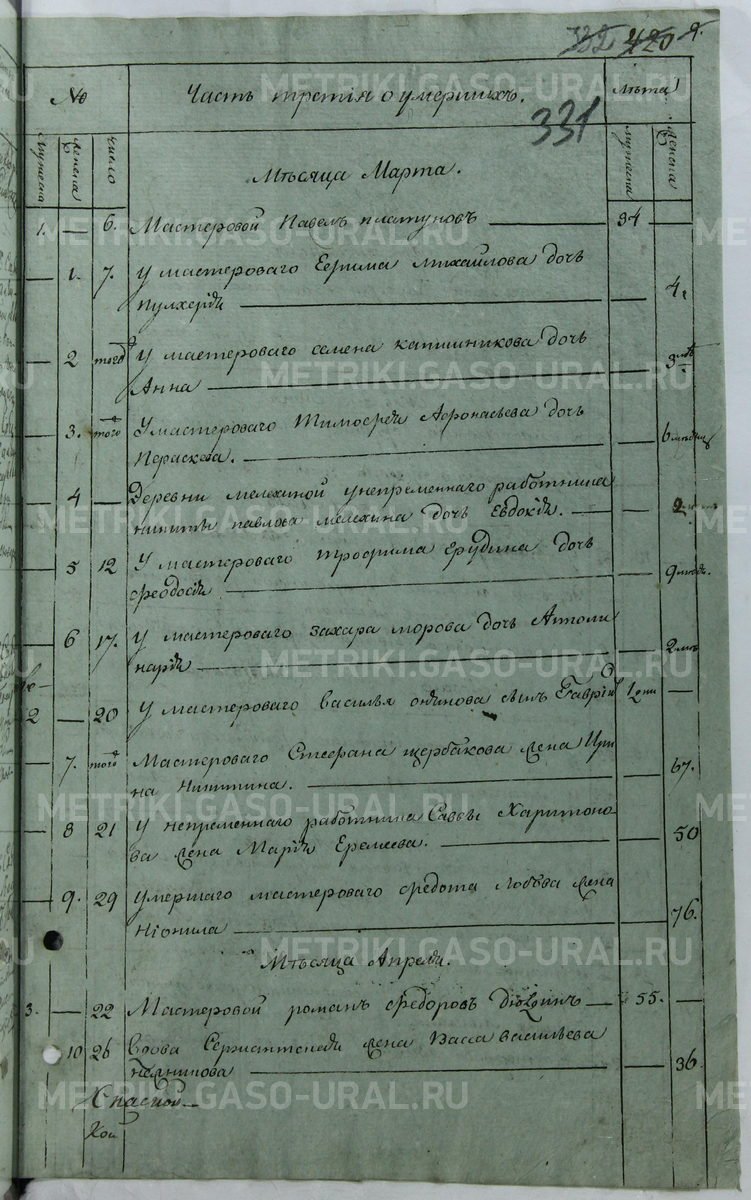 420
№ Часть третія о умершихъ. Лѣта
331
мужеска женска число мужеска женска
Мѣсяца Марта.
1. — 6. Мастеровой Павелъ платуновъ 34 —
1. 7. У мастероваго Ефима михайлова дочь
пулхерія 4
2 того У мастероваго семена дочь
Анна 3
3. того У мастероваго Тимофея Афонасьева дочь
Параскева. 6
4 — Деревни мелехиной у непременнаго работника
никиты павлова мелехина дочь Евдокія. 2
5 12 У мастероваго трофима дочь
феодосія 9
6 17. У мастероваго захара морова дочь Аполи
нарія 2
2 — 20 У мастероваго василья сынъ Гаврій —
7. того Мастероваго Стефана щербакова жена Ири
на Никитина. 67.
8 21 У непременнаго работника Саввы Харитоно
ва жена Марія Еремеева. 50
9. 29 умершаго мастероваго федота жена
Ніонила 76.
Мѣсяца Апреля.
3. — 22 Мастеровой романъ федоровъ 55. —
10 26 Вдова Сержантская жена Васса васильева
36.
METRIKI.GASO-URAL.RU